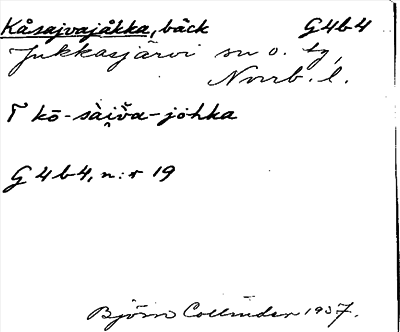 Kåsajvajåkka, bäck G4b4
Jukkasjärvi sn o. tg,
Norrb. l.
kō-sài̯v̆a-johka
G 4 b 4, n:r 19
Björn Collinder 1937.